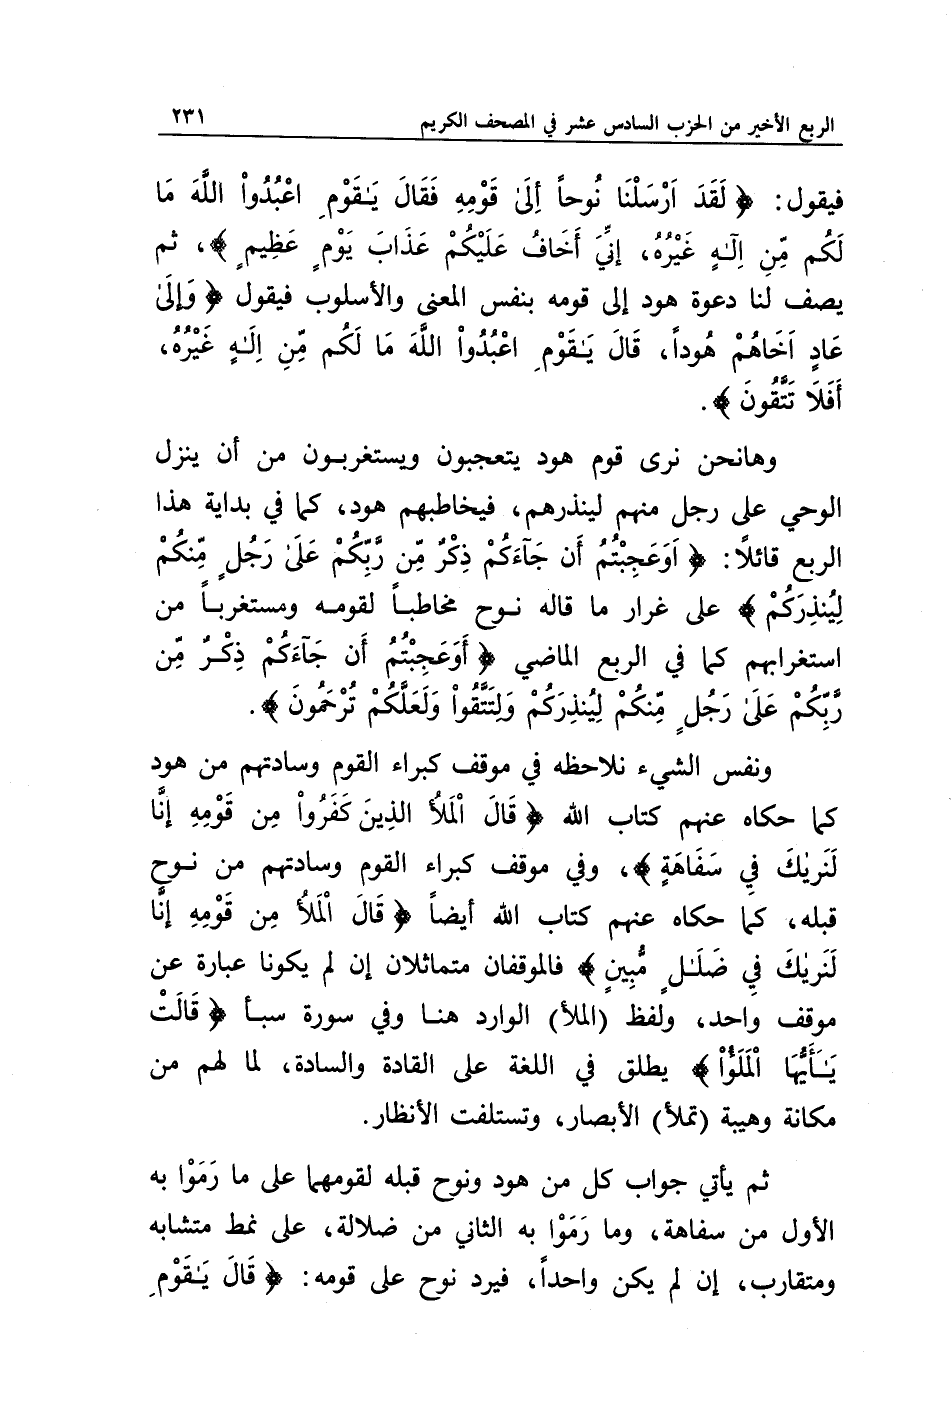 الربع الأخير من الحزب السادس عشر في المصحف الكريم ٢٣١
فيقول: ﴿ لَقَدَ اَرْسَلْنَا نُوحاً اِلَىٰ قَوْمِهِ فَقَالَ يَـٰقَوْمِ اعْبُدُواْ اللَّهَ مَا
لَكُم مِّنِ اِلَـٰهٍ غَيْرُهُ، إِنِّيَ أَخَافُ عَلَيْكُمْ عَذَابَ يَوْمٍ عَظِيمٍ ﴾، ثم
يصف لنا دعوة هود إلى قومه بنفس المعنى والأسلوب فيقول ﴿ وَإِلَىٰ
عَادٍ اَخَاهُمْ هُوداً، قَالَ يَـٰقَوْمِ اعْبُدُواْ اللَّهَ مَا لَكُم مِّنِ اِلَـٰهٍ غَيْرُهُ،
أَفَلَا تَتَّقُونَ ﴾.
وهانحن نرى قوم هود يتعجبون ويستغربـون من أن ينزل
الوحي على رجل منهم لينذرهم، فيخاطبهم هود، كما في بداية هذا
الربع قائلاً: ﴿ اَوَعَجِبْتُمُ أَن جَآءَكُمْ ذِكْرٌ مِّن رَّبِّكُمْ عَلَىٰ رَجُلٍ مِّنكُمْ
لِيُنذِرَكُمْ ﴾ على غرار ما قاله نـوح مخاطبـاً لقومـه ومستغربـاً من
استغرابهم كما في الربع الماضي ﴿ أَوَعَجِبْتُمُ أَن جَآءَكُمْ ذِكْـرٌ مِّن
رَّبِّكُمْ عَلَىٰ رَجُلٍ مِّنكُمْ لِيُنذِرَكُمْ وَلِتَتَّقُواْ وَلَعَلَّكُمْ تُرْحَمُونَ ﴾.
ونفس الشيء نلاحظه في موقف كبراء القوم وسادتهم من هود
كما حكاه عنهم كتاب الله ﴿ قَالَ اْلْمَلَأُ الذِينَ كَفَرُواْ مِن قَوْمِهِ إِنَّا
لَنَرىٰكَ فِي سَفَاهَةٍ ﴾، وفي موقف كبراء القوم وسادتهم من نـوح
قبله، كما حكاه عنهم كتاب الله أيضاً ﴿ قَالَ اْلْمَلَأُ مِن قَوْمِهِ إِنَّا
لَنَرىٰكَ فِي ضَلَـٰلٍ مُّبِينٍ ﴾ فالموقفان متماثلان إن لم يكونا عبارة عن
موقف واحد، ولفظ (الملأ) الوارد هنـا وفي سورة سبـأ ﴿ قَالَتْ
يَـٰأَيُّهَا اْلْمَلَؤُاْ ﴾ يطلق في اللغة على القادة والسادة، لما لهم من
مكانة وهيبة (تملأ) الأبصار، وتستلفت الأنظار.
ثم يأتي جواب كل من هود ونوح قبله لقومهما على ما رَمَوْا به
الأول من سفاهة، وما رَمَوْا به الثاني من ضلالة، على نمط متشابه
ومتقارب، إن لم يكن واحداً، فيرد نوح على قومه: ﴿ قَالَ يَـٰقَوْمِ